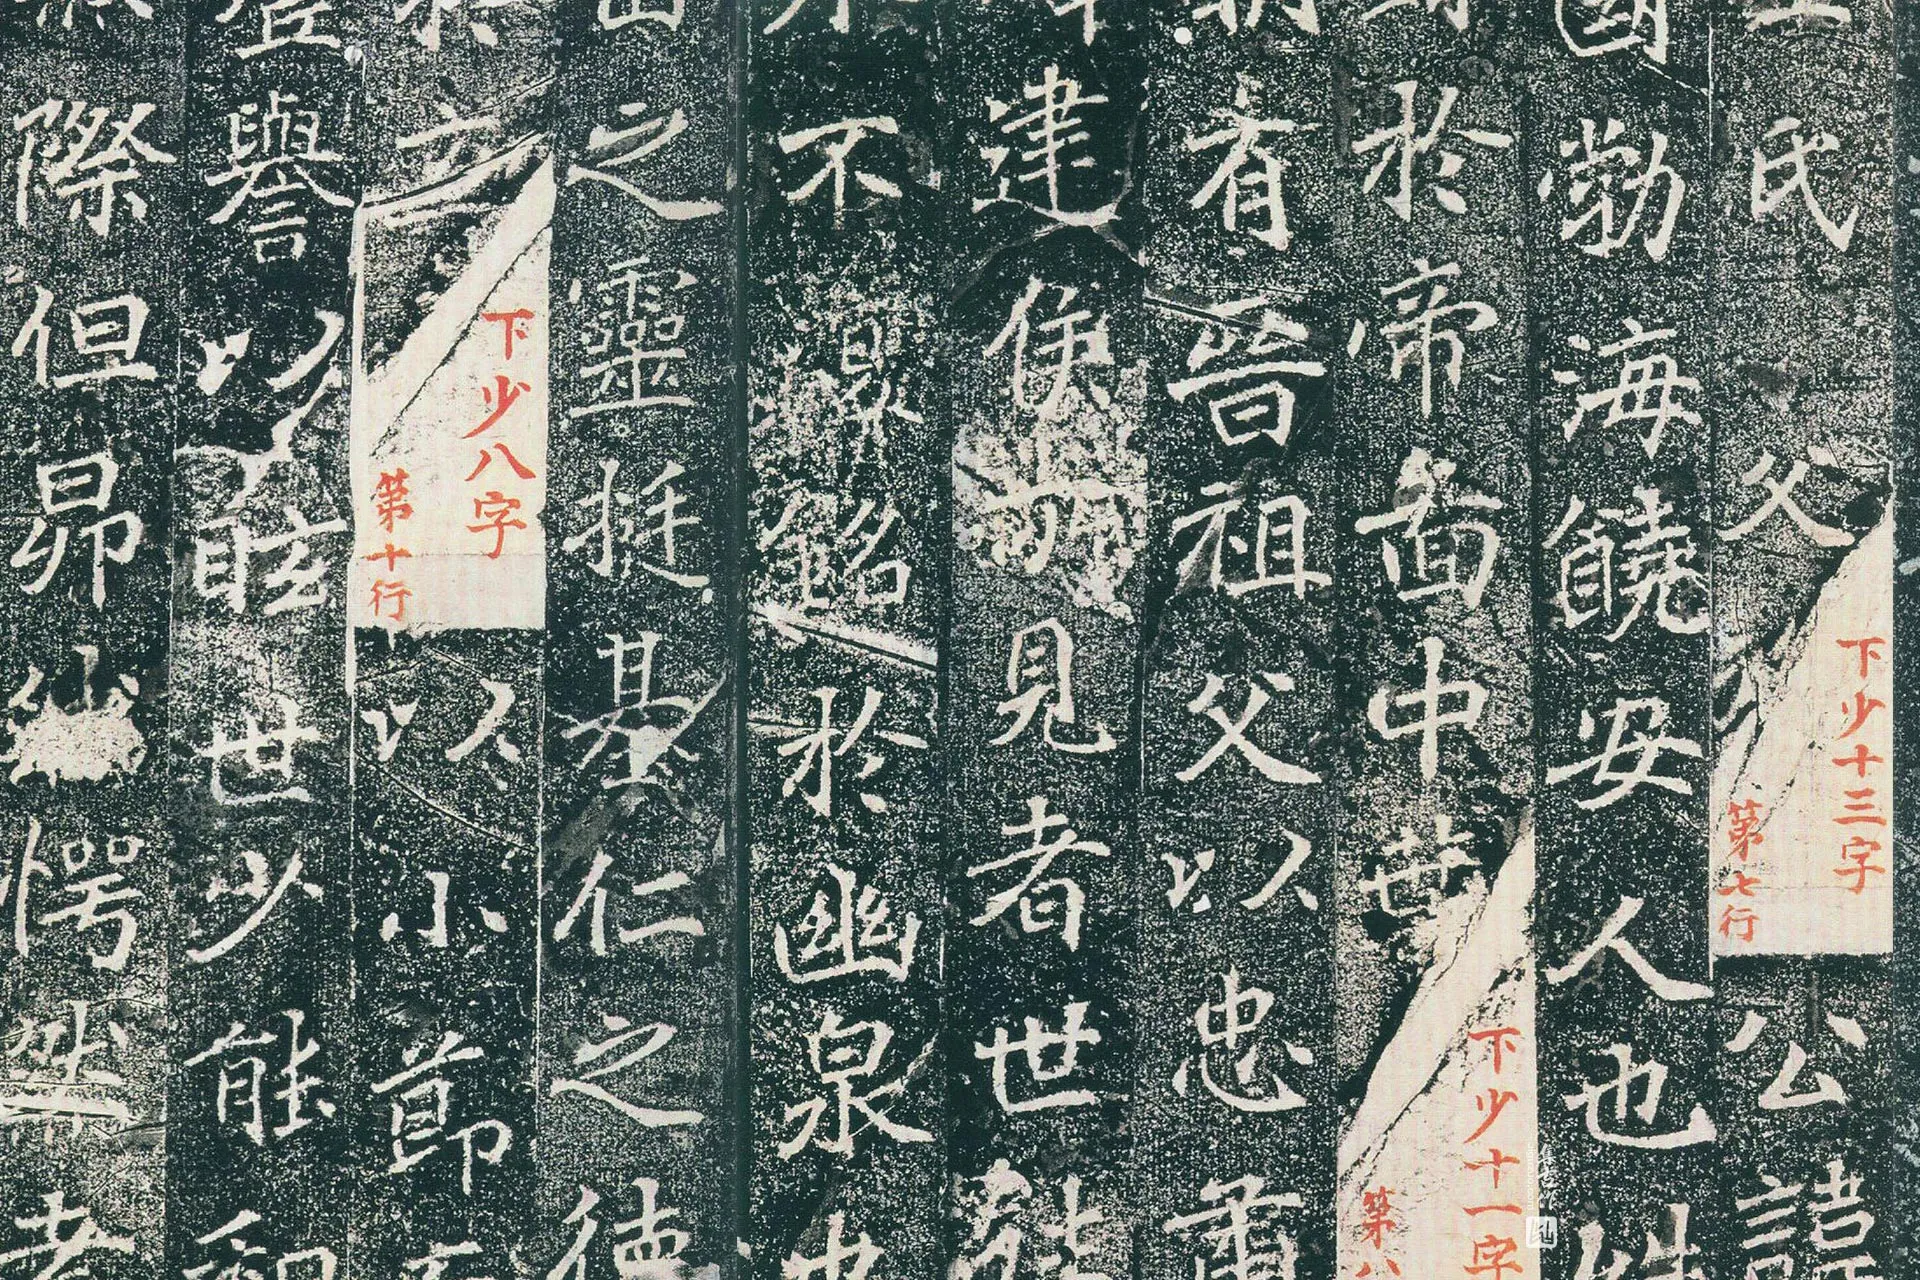 氏父
下少十三字
第七行
公諱
國勃海饒安人也姓
於帝啚中葉
下少十一字
第八
有晉祖父以忠肅
建侯見者世
不銘於幽泉
之靈挺基仁之德
下少八字
第十行
以小節
譽以眩世少能
際但昂愕